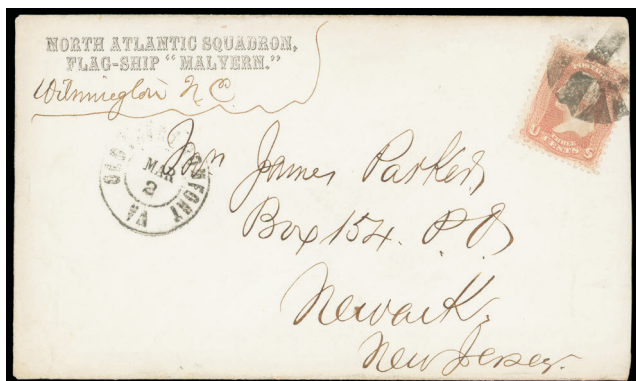 NORTH ATLANTIC SQUADRON,
FLAG-SHIP "MALVERN."
Wilmington N C
OLD POINT COMFORT VA
MAR
2
James Parker,
Box 154. P. O.
Newark,
New Jersey.
THREE
CENTS